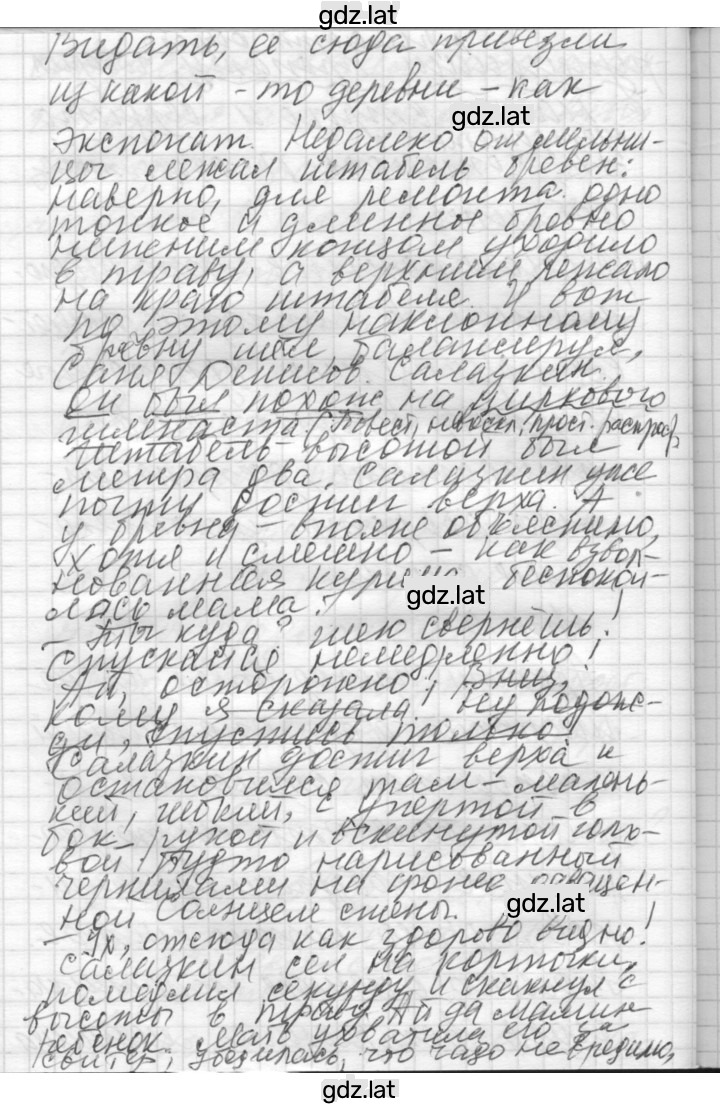 gdz.lat
Видать, её сюда привезли
из какой-то деревни - как
gdz.lat
экспонат. Недалеко от мельни-
цы лежал штабель бревен:
наверно, для ремонта. одно
тонкое и длинное бревно
нижним концом уходило
в траву, а верхним лежало
на краю штабеля. И вот
по этому наклонному
бревну шёл, балансируя,
Саня Денисов. Салазкин.
Он был похож на циркового
гимнаста (повест, невоскл, прост. распрор).
Штабель высотой был
метра два. Салазкин уже
почти достиг верха. А
у бревна - вполне объяснимо,
хотя и смешно - как взвол-
нованная курица беспокои-
gdz.lat
лась мама.
- Ты куда? шею свернёшь!
Спускайся немедленно!
Ай, осторожно! Вниз,
кому я сказала! Ну подож-
ди, спустись только
Салазкин достиг верха и
остановился там - малень-
кий, гибкий, с упертой в
бок рукой и вскинутой голо-
вой будто нарисованный
чернилами на фоне освещен-
gdz.lat
ной солнцем стены.
- Ух, отсюда как здорово видно!
Салазкин сел на корточки,
помедлил секунду и скакнул с
высоты в траву. Ай да мамин
ребёнок. Мать ухватила его за
свитер, убедилась, что чадо невредимо,
gdz.lat